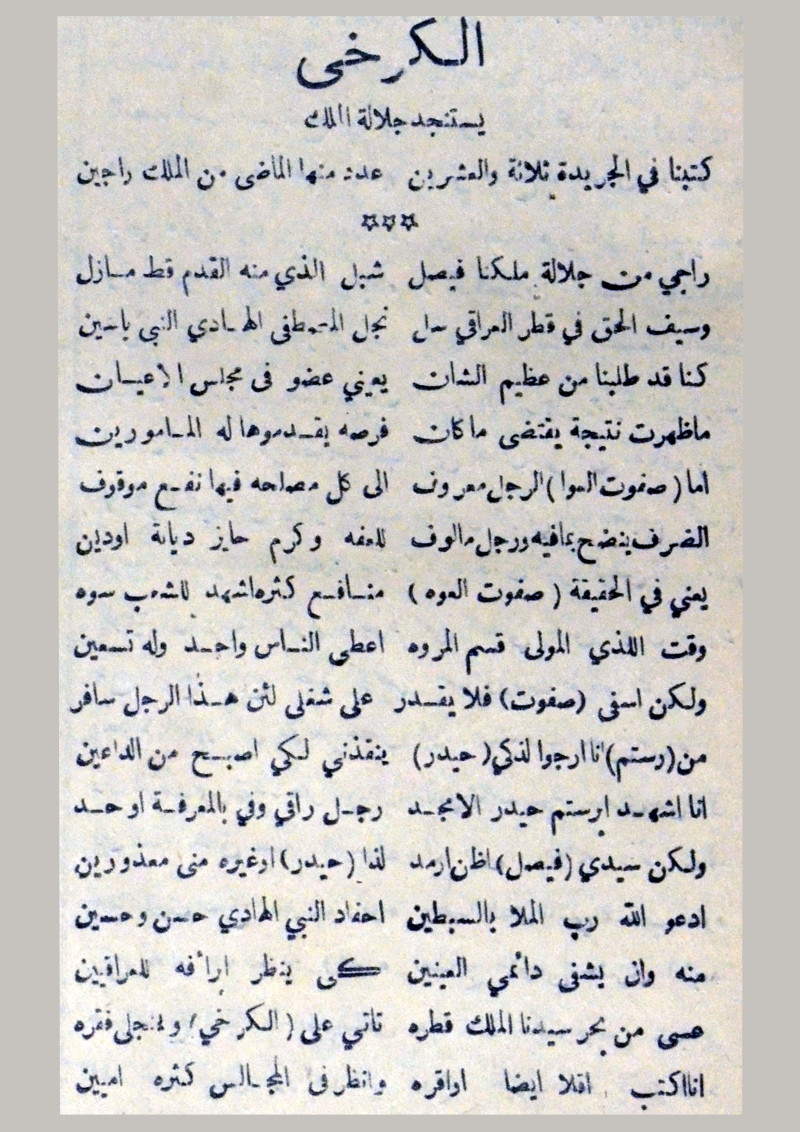 الكرخي
يستنجد جلالة الملك
كتبنا في الجريدة ثلاثة والعشرين عدد منها الماضى من الملك راجين
راجي من جلالة ملكنا فيصل شبل الذي منه القدم قط مازل
وسيف الحق في قطر العراقي سل نجل المصطفى الهادي النبي ياسين
كنا قد طلبنا من عظيم الشان يعيني عضو فى مجلس الاعيان
ماظهرت نتيجة يقتضى ماكان فرصه يقدموها له المامورين
اما (صفوت العوا) الرجل معروف الى كل مصلحه فيها نفع موقوف
الضرف ينضح بمافيه ورجل مالوف للعفه وكرم حايز ديانة اودين
يعني في الحقيقة (صفوت العوه) منافع كثره اشهد للشعب سوه
وقت اللذي المولى قسم المروه اعطى الناس واحد وله تسعين
ولكن اسفى (صفوت) فلا يقدر على شغلى لئن هذا الرجل سافر
من (رستم) انا ارجوا لذكي (حيدر) ينقذني لكي اصبح من الداعين
انا اشهد ابرستم حيدر الامجد رجل راقي وفي بالمعرفة اوحد
ولكن سيدي (فيصل) اظن ارمد لذا (حيدر) اوغيره منى معذورين
ادعو الله رب الملا بالسبطين احفاد النبي الهادي حسن وحسين
منه وان يشفى دائمي العينين كى ينظر ابرأفه للعراقيين
عسى من بحر سيدنا الملك قطره تاتي على (الكرخي) وينجلى فقره
انا اكتب اقلا ايضا اواقره وانظر فى المجالس كثره اميين